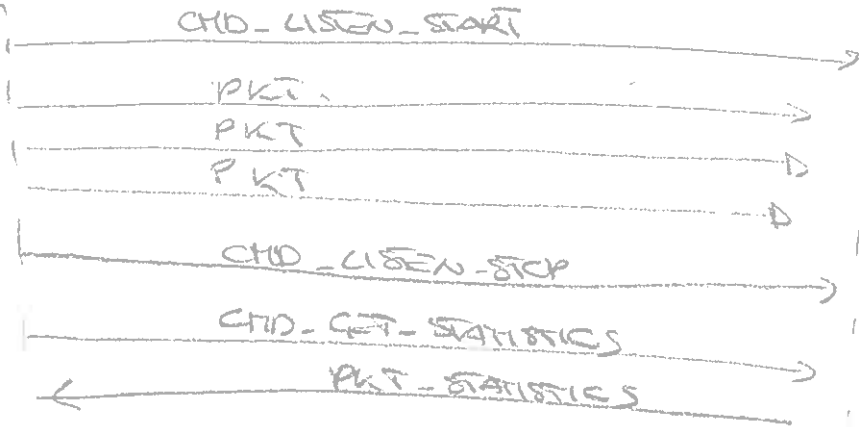 CMD_LISTEN_START
PKT
PKT
PKT
CMD_LISTEN_STOP
CMD_GET_STATISTICS
PKT_STATISTICS